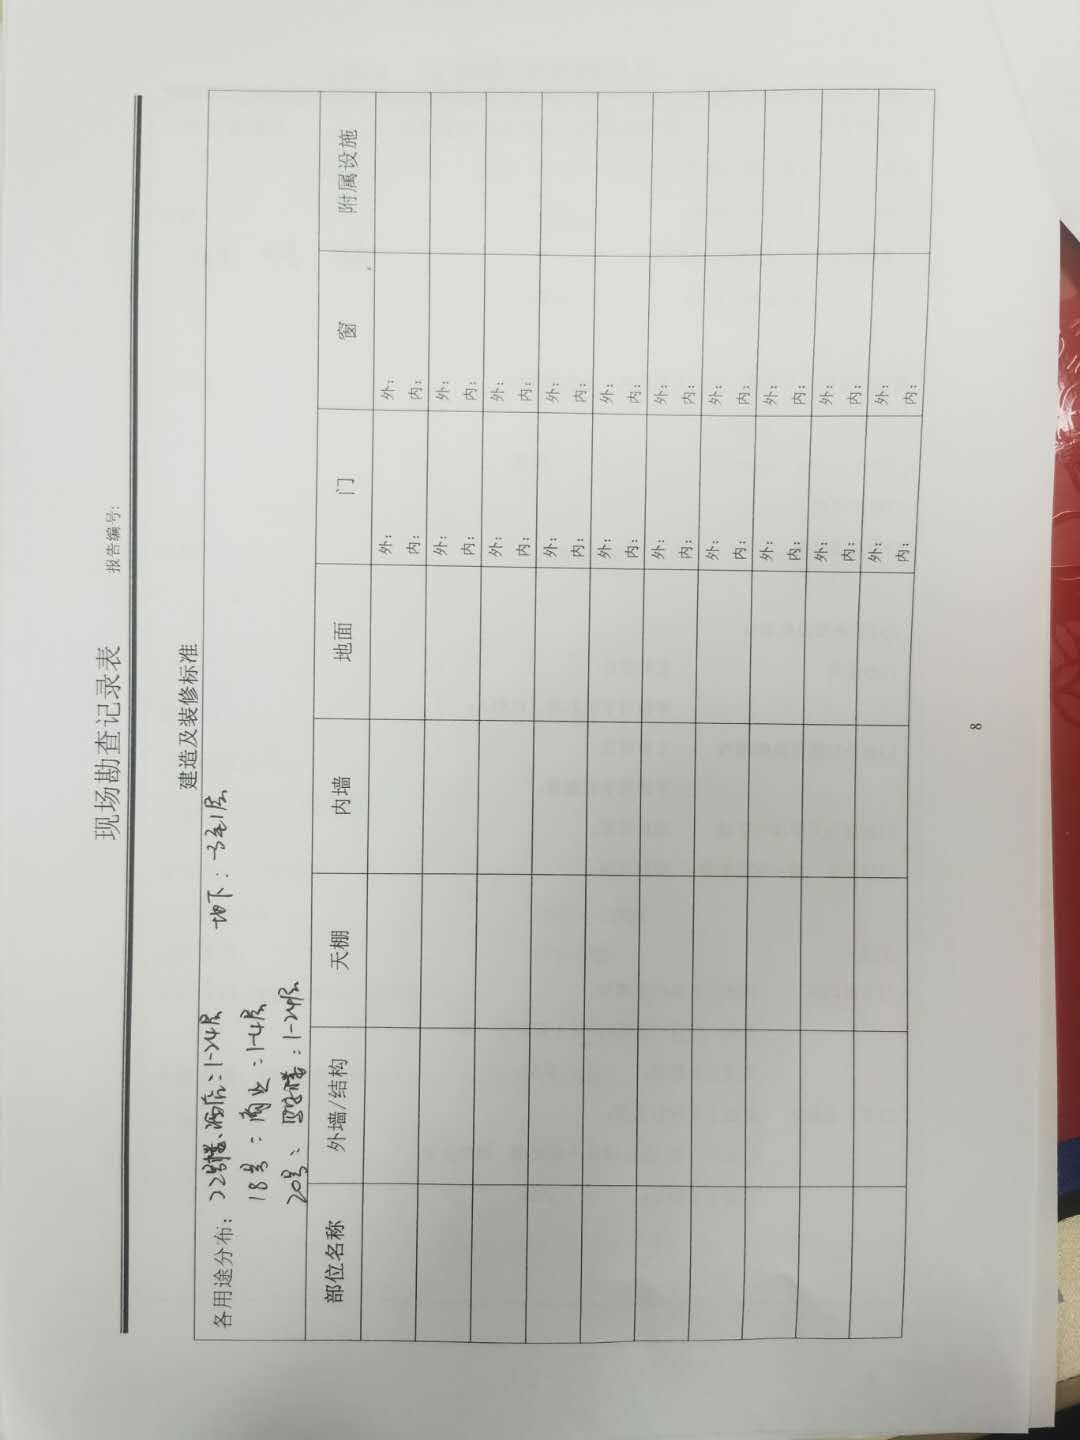 现场勘查记录表
报告编号:
建造及装修标准
各用途分布: 22号楼、酒店:1-24层 地下:-3至1层
18号:商业:1-4层
20号::1-24层
部位名称 外墙/结构 天棚 内墙 地面 门 窗 附属设施
外: 外:
内: 内:
外: 外:
内: 内:
外: 外:
内: 内:
外: 外:
内: 内:
外: 外:
内: 内:
外: 外:
内: 内:
外: 外:
内: 内:
外: 外:
内: 内:
外: 外:
内: 内:
外: 外:
内: 内:
8